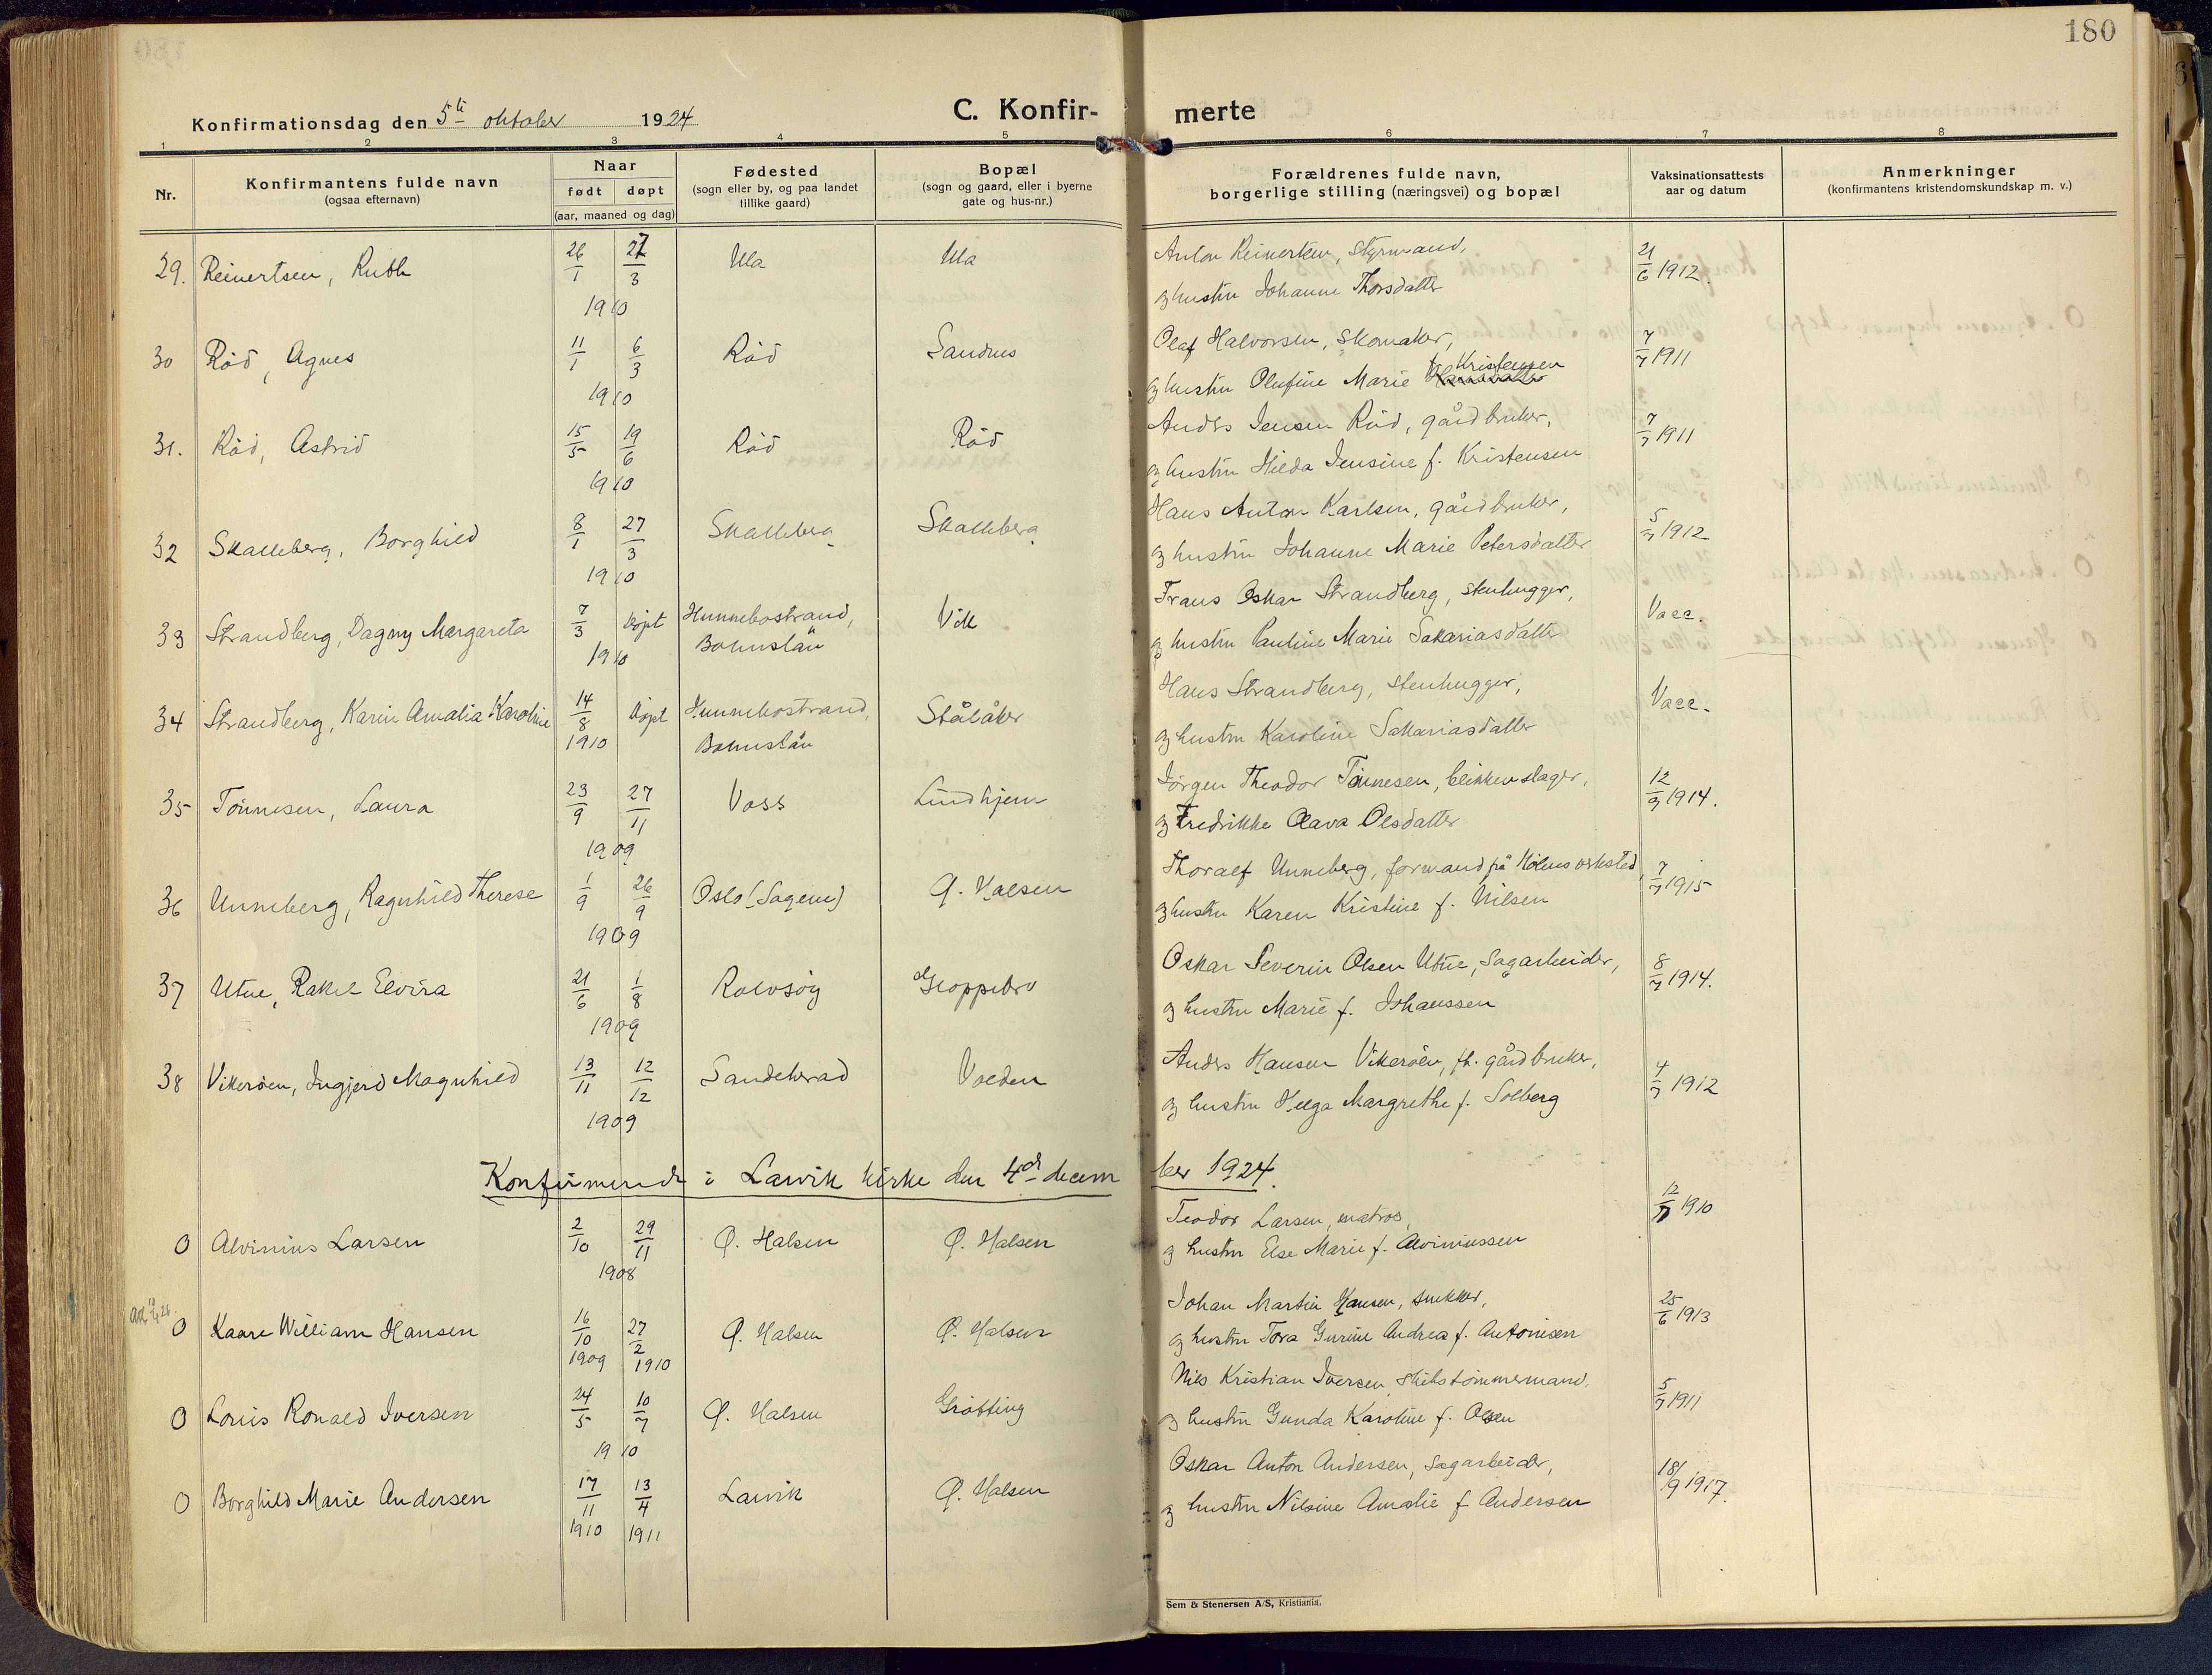 180
Konfirmationsdag den 5te oktober 1924
C. Konfir- merte
1 2 3 4 5 6 7 8
Nr.
Konfirmantens fulde navn
(ogsaa efternavn)
Naar
født døpt
(aar, maaned og dag)
Fødested
(sogn eller by, og paa landet
tillike gaard)
Bopæl
(sogn og gaard, eller i byerne
gate og hus-nr.)
Forældrenes fulde navn,
borgerlige stilling (næringsvei) og bopæl
Vaksinationsattests
aar og datum
Anmerkninger
(konfirmantens kristendomskundskap m. v.)
29. Reinertsen, Ruth 26/1 27/3 1910 Ula Ula Anton Reinertsen, Styrmand, 21/6 1912.
og hustru Johanne Thorsdatter
30 Röd, Agnes 11/1 6/3 1910 Röd Sandnes Olaf Halvorsen, Skomaker, 7/7 1911
og hustru Olufine Marie f. Kristensen
31. Röd, Astrid 15/5 19/6 1910 Röd Röd Anders Jensen Röd, gårdbruker, 7/7 1911
og hustru Hilda Jensine f. Kristensen
32 Skalleberg, Borghild 8/1 27/3 1910 Skalleberg Skalleberg Hans Anton Karlsen, gårdbruker, 5/7 1912
og hustru Johanne Marie Petersdatter
33 Strandberg, Dagny Margareta 7/3 döpt 1910 Hunnebostrand, Vik Frans Oskar Strandberg, stenhugger, Vacc.
Bohuslän og hustru Pauline Marie Sakariasdatter
34 Strandberg, Karin Amalia Karoline 14/8 1910 döpt Hunnebostrand, Stålåker Hans Strandberg, stenhugger, Vacc.
Bohuslän og hustru Karoline Sakariasdatter
35 Tönnesen, Laura 23/9 27/11 1909 Voss Lindhjem Jörgen Theodor Tönnesen, blikkenslager, 12/9 1914.
og Fredrikke Olava Olsdatter
36 Unneberg, Ragnhild Therese 1/9 26/9 1909 Oslo (Sagene) Ø. Halsen Thoralf Unneberg, formand på Hölens verksted, 7/7 1915
og hustru Karen Kristine f. Nilsen
37 Utne, Rakel Elvira 21/6 1/8 1909 Rolvsöy Gloppebro Oskar Severin Olsen Utne, Sagarbeider, 8/7 1914.
og hustru Marie f. Johanssen
38 Vikeröen, Ingjerd Magnhild 13/11 12/12 1909 Sandeherad Valden Anders Hansen Vikeröen, fh. gårdbruker, 4/7 1912
og hustru Helga Margrethe f. Solberg
Konfirmerede i Larvik kirke den 4de december 1924.
0 Alvinius Larsen 2/10 29/11 1908 Ø. Halsen Ø. Halsen Teodor Larsen, matros, 12/7 1910
og hustru Else Marie f. Alviniussen
0 Kaare William Hansen 16/10 1909 27/2 1910 Ø. Halsen Ø. Halsen Johan Martin Hansen, snekker, 25/6 1913
og hustru Tora Gurine Andrea f. Antonisen
0 Louis Ronald Iversen 24/5 10/7 1910 Ø. Halsen Grötting Nils Kristian Iversen, skibstömmermand, 5/7 1911
og hustru Gunda Karoline f. Olsen
0 Borghild Marie Andersen 17/11 1910 13/4 1911 Larvik Ø. Halsen Oskar Anton Andersen, Sagarbeider, 18/9 1917.
og hustru Nilsine Amalie f. Andersen
Sem & Stenersen A/S, Kristiania.